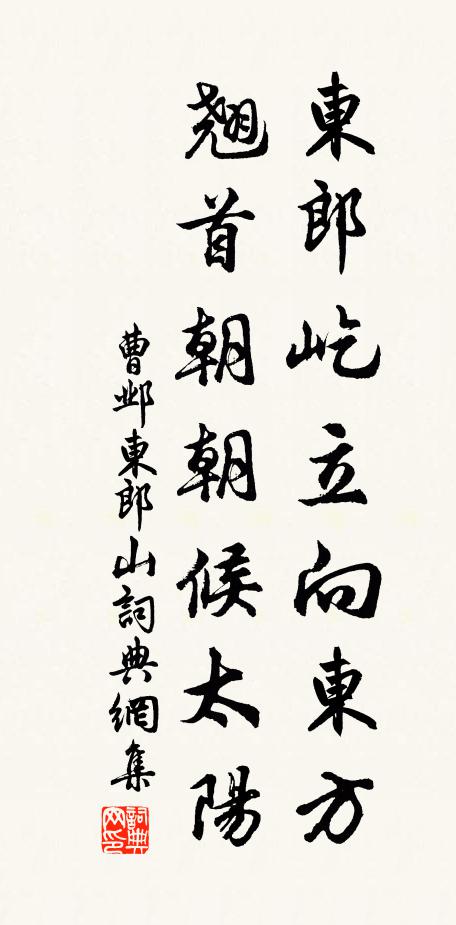 東郎屹立向東方
翹首朝朝候太陽
曹邺東郎山詞典網集
詞典网印